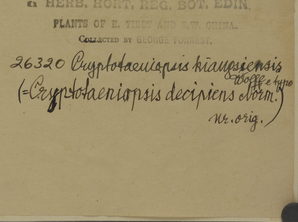 HERB. HORT. REG. BOT. EDIN.
PLANTS OF E. TIBET AND S.W. CHINA.
COLLECTED BY GEORGE FORREST.
26320 Cryptotaeniopsis kiangsiensis
Wolff
(=Cryptotaeniopsis decipiens Norm.)
nr. orig.